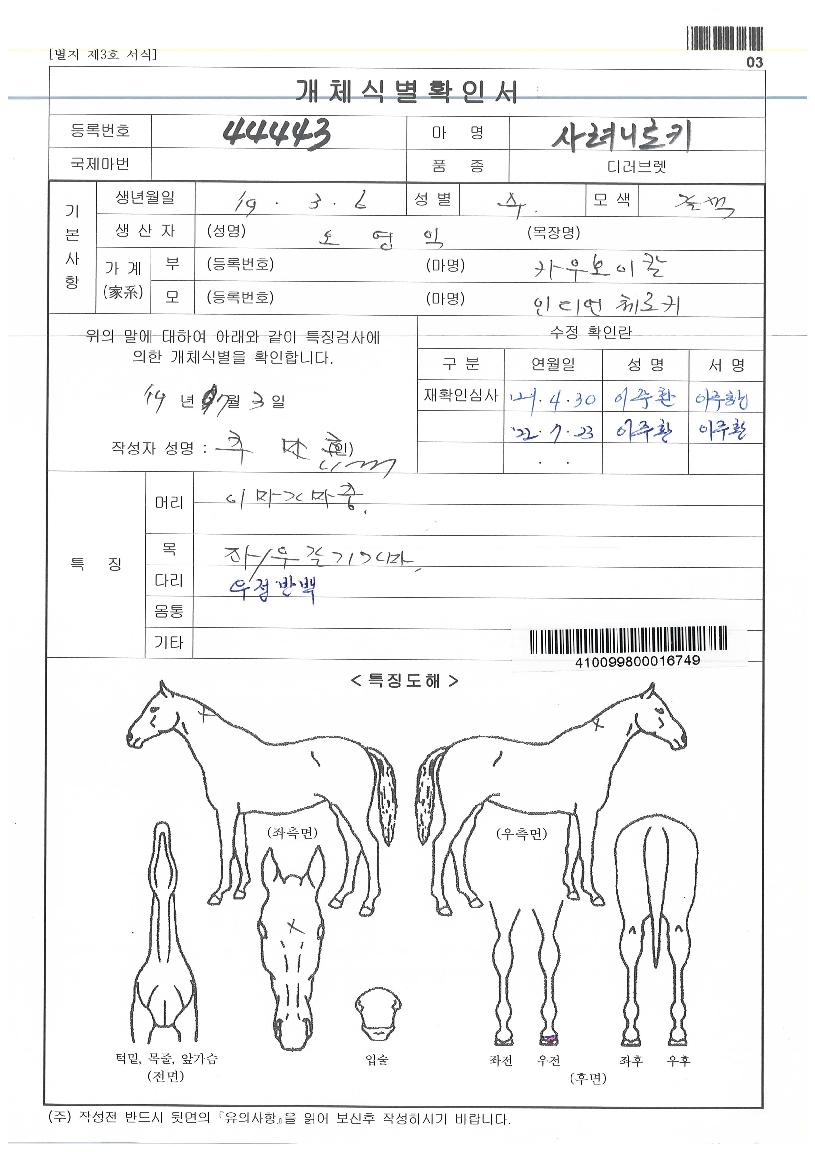 [별지 제3호 서식]
03
개체식별확인서
등록번호 44443 마 명 사려니로키
국제마번 품 종 더러브렛
생년월일 19 . 3 . 6 성 별 수. 모 색 갈색
기본사항
생 산 자 (성명) 오 영 익 (목장명)
가 계 (家系) 부 (등록번호) (마명) 카우보이칼
모 (등록번호) (마명) 인디언체로키
위의 말에 대하여 아래와 같이 특징검사에
의한 개체식별을 확인합니다.
수정 확인란
구 분 연월일 성 명 서 명
재확인심사 '21. 4. 30 이주환 이주환
'22. 7. 23 이주환 이주환
. .
19 년 7월 3 일
작성자 성명 : (인)
특 징
머리 이마가마중.
목 좌/우갈기가마.
다리 우전반백
몸통
기타
410099800016749
< 특징도해 >
(좌측면) (우측면)
턱밑, 목줄, 앞가슴
(전면)
입술
좌전 우전 좌후 우후
(후면)
(주) 작성전 반드시 뒷면의 『유의사항』을 읽어 보신후 작성하시기 바랍니다.